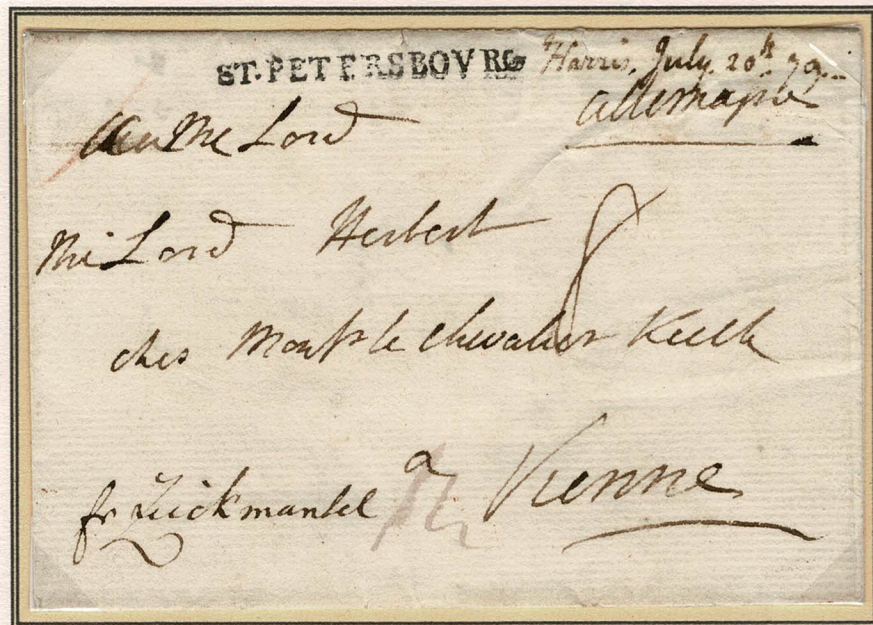 ST. PETERSBOVRG Harris, July 20th 79.
allemagne
The Lord
Mi Lord Herbert
8
ches Monsr le Chevalier Keith
a Vienne
fr Zuickmantel